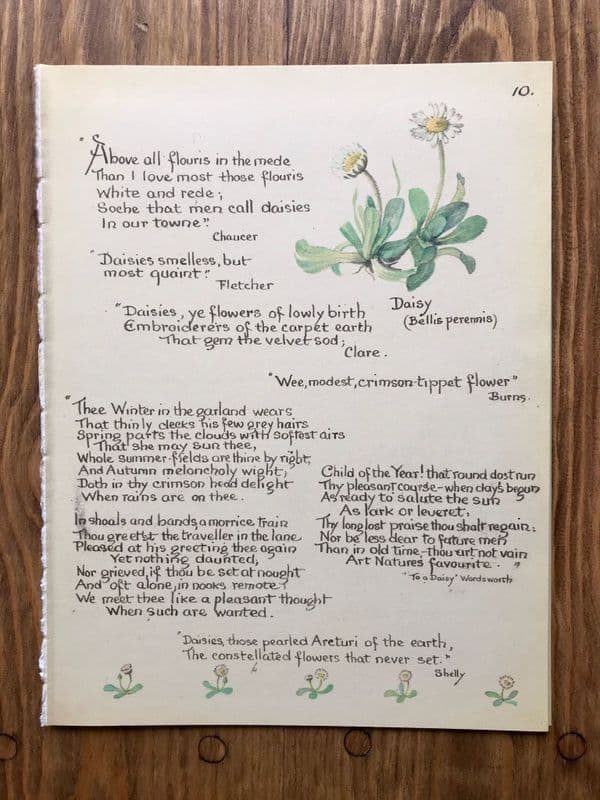 10.
"Above all flouris in the mede
Than I love most those flouris
White and rede;
Soche that men call daisies
In our towne".
Chaucer
"Daisies smelless, but
most quaint."
Fletcher
"Daisies, ye flowers of lowly birth
Embroiderers of the carpet earth
That gem the velvet sod;
Clare.
Daisy
(Bellis perennis)
"Wee, modest, crimson-tippet flower"
Burns.
"Thee Winter in the garland wears
That thinly decks his few grey hairs
Spring parts the clouds with softest airs
That she may sun thee,
Whole summer-fields are thine by right,
And Autumn meloncholy wight,
Doth in thy crimson head delight
When rains are on thee.
In shoals and bands, a morrice train
Thou greetst the traveller in the lane
Pleased at his greeting thee again
Yet nothing daunted,
Nor grieved, if thou be set at nought
And oft alone, in nooks remote
We meet thee like a pleasant thought
When such are wanted.
Child of the Year! that round dost run
Thy pleasant course - when day's begun
As ready to salute the sun
As lark or leveret,
Thy long lost praise thou shalt regain;
Nor be less dear to future men
Than in old time, - thou art not vain
Art Natures favourite."
"To a Daisy" Wordsworth
"Daisies, those pearled Arcturi of the earth,
The constellated flowers that never set."
Shelly